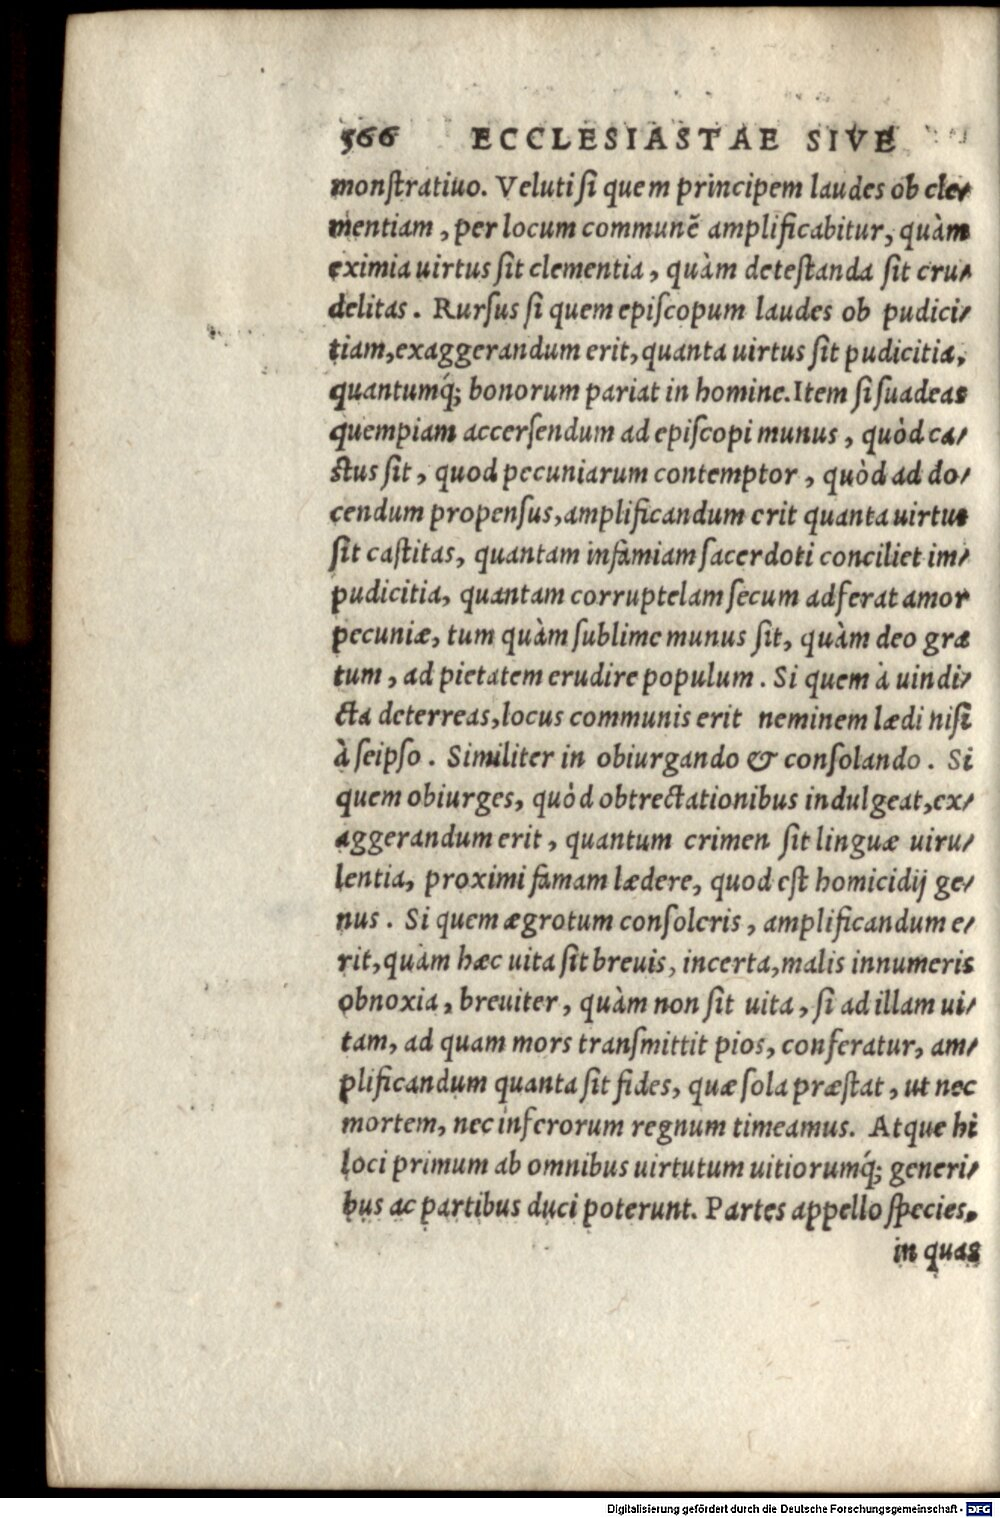 566 ECCLESIASTAE SIVE
monſtratiuo. Veluti ſi quem principem laudes ob cle⸗
mentiam, per locum communẽ amplificabitur, quàm
eximia uirtus ſit clementia, quàm deteſtanda ſit cru⸗
delitas. Rurſus ſi quem epiſcopum laudes ob pudici⸗
tiam, exaggerandum erit, quanta uirtus ſit pudicitia,
quantumq́; bonorum pariat in homine. Item ſi ſuadeas
quempiam accerſendum ad epiſcopi munus, quòd ca⸗
ſtus ſit, quod pecuniarum contemptor, quòd ad do⸗
cendum propenſus, amplificandum erit quanta uirtus
ſit caſtitas, quantam infamiam ſacerdoti conciliet im⸗
pudicitia, quantam corruptelam ſecum adferat amor
pecuniæ, tum quàm ſublime munus ſit, quàm deo gra
tum, ad pietatem erudire populum. Si quem à uindi⸗
cta deterreas, locus communis erit neminem lædi niſi
à ſeipſo. Similiter in obiurgando & conſolando. Si
quem obiurges, quòd obtrectationibus indulgeat, ex⸗
aggerandum erit, quantum crimen ſit linguæ uiru⸗
lentia, proximi famam lædere, quod eſt homicidij ge⸗
nus. Si quem ægrotum conſoleris, amplificandum e⸗
rit, quàm hæc uita ſit breuis, incerta, malis innumeris
obnoxia, breuiter, quàm non ſit uita, ſi ad illam ui⸗
tam, ad quam mors tranſmittit pios, conferatur, am⸗
plificandum quanta ſit fides, quæ ſola præſtat, ut nec
mortem, nec inferorum regnum timeamus. Atque hi
loci primum ab omnibus uirtutum uitiorumq́; generi⸗
bus ac partibus duci poterunt. Partes appello ſpecies,
in quas
Digitalisierung gefördert durch die Deutsche Forschungsgemeinschaft - DFG